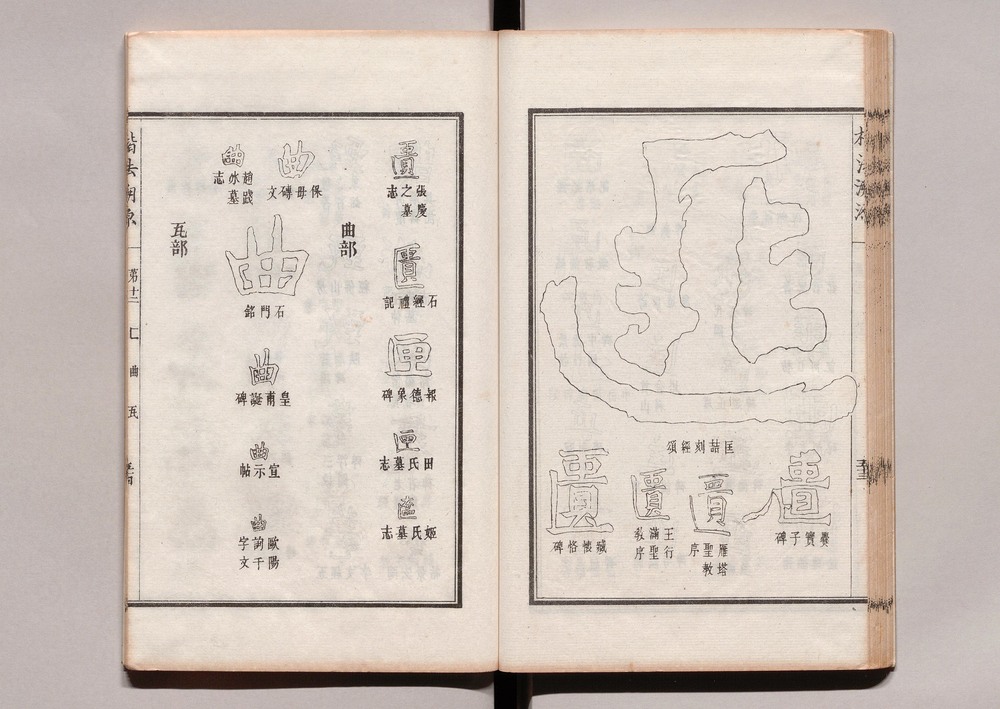 匹
匡喆刻經頌
匱
爨寶子碑
匱
雁塔聖教序
匱
王行滿聖教序
匱
臧懷恪碑
匱
張慶之墓志
匱
石經禮記
匣
報德象碑
匣
田氏墓志
姬氏墓志
曲部
曲
保母磚文
曲
趙冰墓志
曲
石門銘
曲
皇甫誕碑
曲
宣示帖
曲
歐陽詢千字文
瓦部
楷法溯源
第十二
匚
曲
瓦